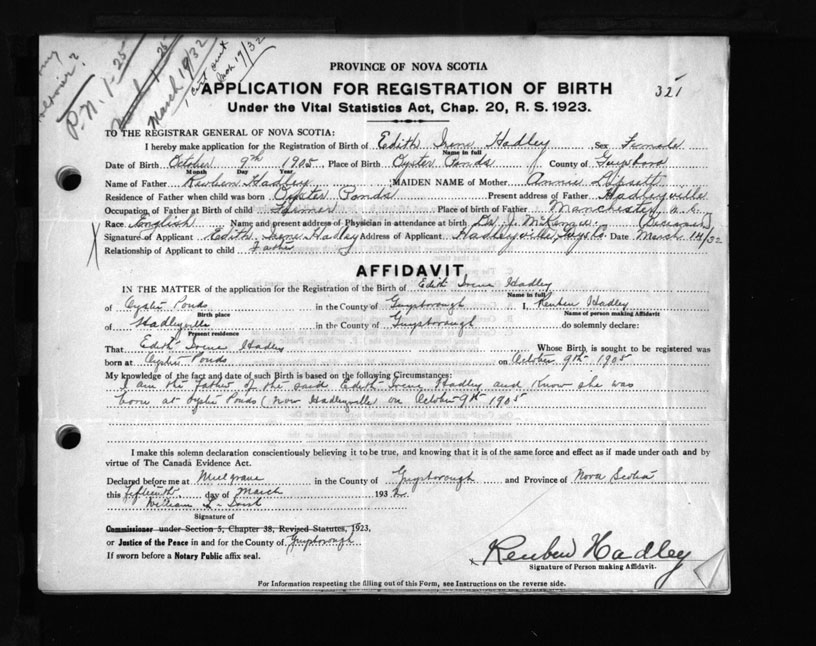 P.N. 1-25
March 19/32
PROVINCE OF NOVA SCOTIA
APPLICATION FOR REGISTRATION OF BIRTH
321
Under the Vital Statistics Act, Chap. 20, R. S. 1923.
TO THE REGISTRAR GENERAL OF NOVA SCOTIA:
I hereby make application for the Registration of Birth of Edith Irene Hadley Sex Female
Name in full
Date of Birth October 9th 1905 Place of Birth Oyster Ponds County of Guysboro
Month Day Year
Name of Father Reuben Hadley MAIDEN NAME of Mother Annie Lipsett
Residence of Father when child was born Oyster Ponds Present address of Father Hadleyville
Occupation of Father at Birth of child Farmer Place of birth of Father Manchester
Race English Name and present address of Physician in attendance at birth Dr. J. McKenzie (Deceased)
Signature of Applicant Edith Irene Hadley Address of Applicant Hadleyville, Guys Co. Date March 14/32
Relationship of Applicant to child Father
AFFIDAVIT
IN THE MATTER of the application for the Registration of the Birth of Edith Irene Hadley
Name in full
of Oyster Ponds in the County of Guysborough I, Reuben Hadley
Birth place Name of person making Affidavit
of Hadleyville in the County of Guysborough do solemnly declare:
Present residence
That Edith Irene Hadley Whose Birth is sought to be registered was
born at Oyster Ponds on October 9th 1905
My knowledge of the fact and date of such Birth is based on the following Circumstances:
I am the father of the said Edith Irene Hadley and know she was
born at Oyster Ponds (now Hadleyville) on October 9th 1905
I make this solemn declaration conscientiously believing it to be true, and knowing that it is of the same force and effect as if made under oath and by
virtue of The Canada Evidence Act.
Declared before me at Mulgrave in the County of Guysborough and Province of Nova Scotia
this fifteenth day of March 1932
William
Signature of
Commissioner under Section 5, Chapter 38, Revised Statutes, 1923,
or Justice of the Peace in and for the County of Guysborough
If sworn before a Notary Public affix seal.
Reuben Hadley
Signature of Person making Affidavit.
For Information respecting the filling out of this Form, see Instructions on the reverse side.